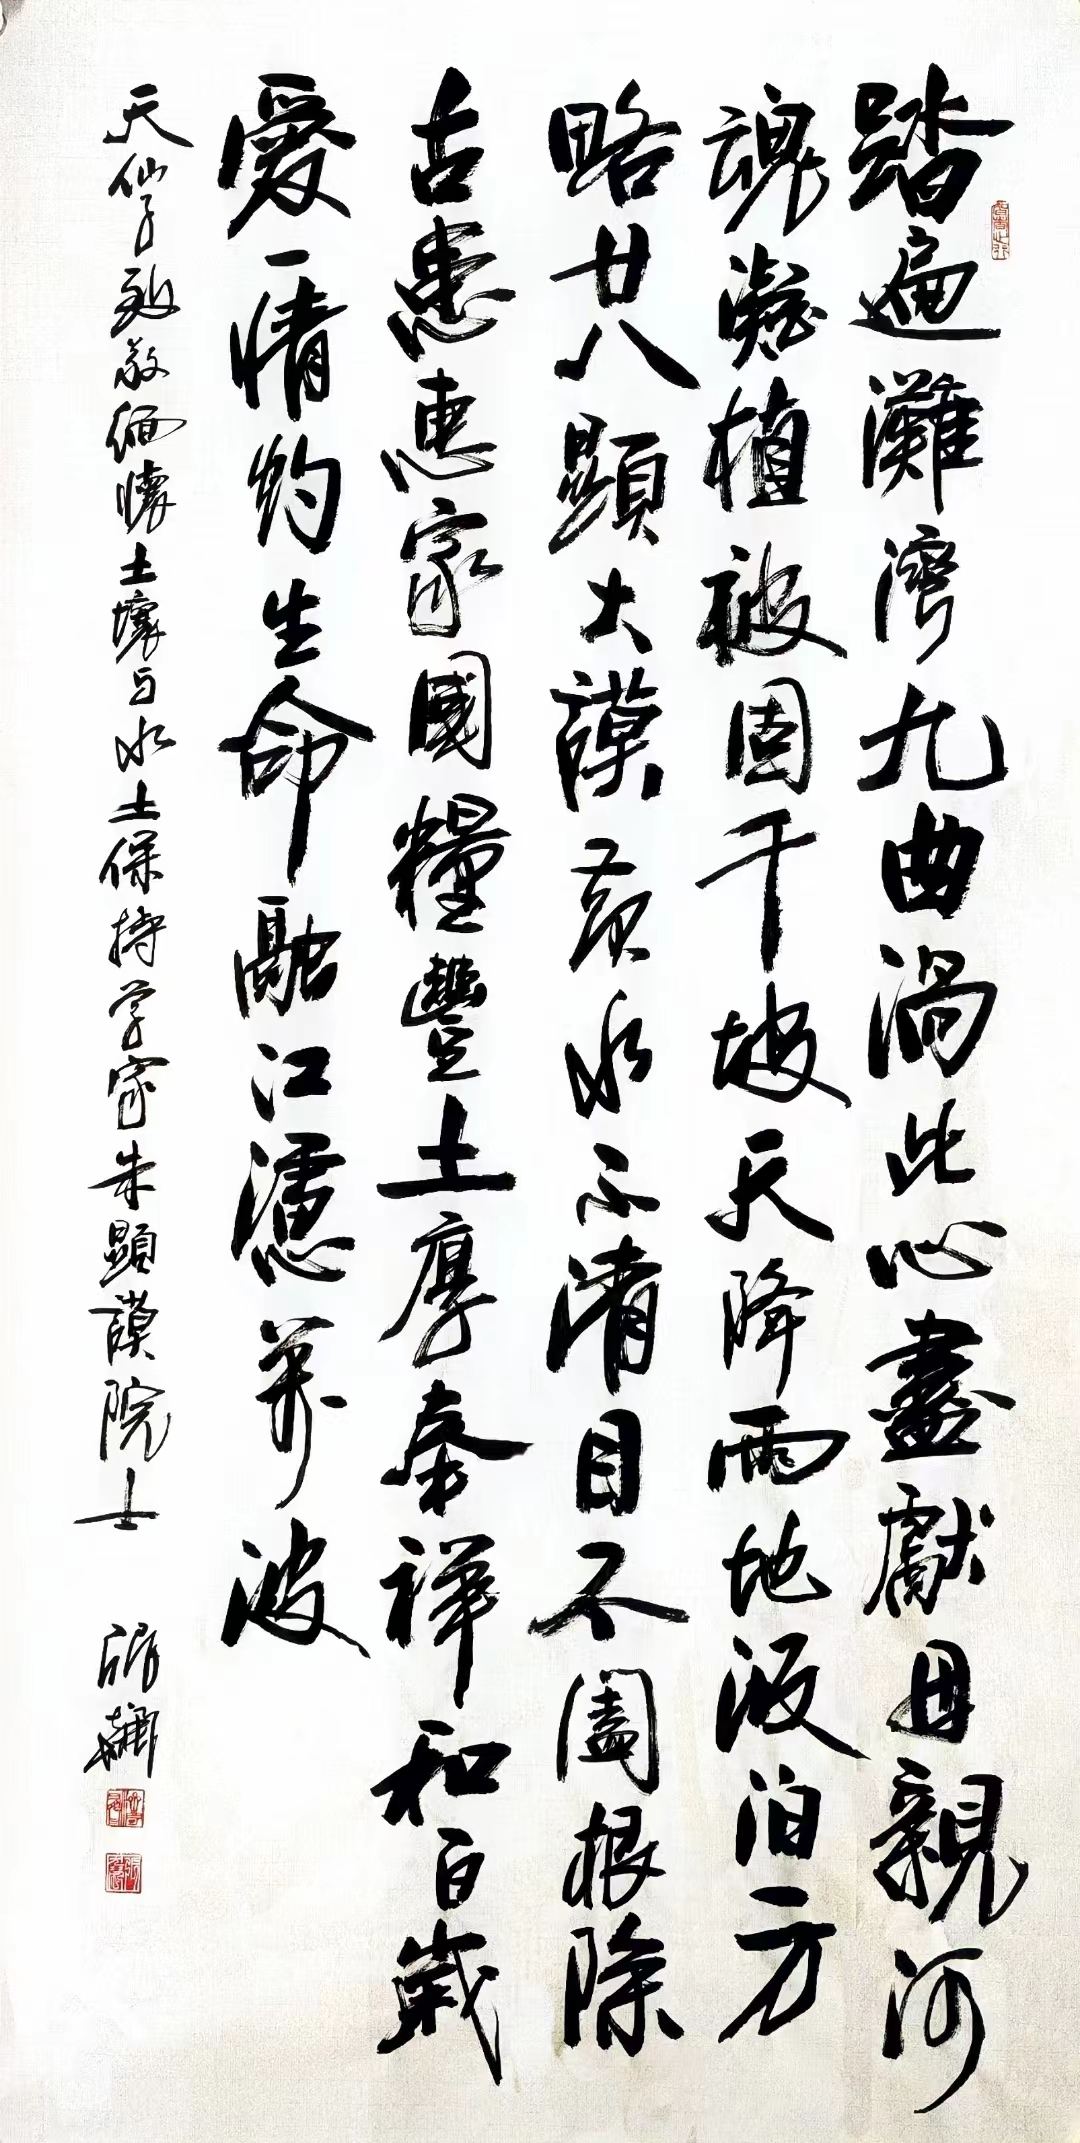 踏遍灘灣九曲渦此心盡獻母親河
魂凝植被固千坡天降雨地液泊方
略廿八顯大謨黃水不清目不闔根除
古患惠家國糧豐土厚奉祥和百歲
愛情灼生命融江漶万波
天仙子 致敬緬懷土壤与水土保持学家朱顯謨院士